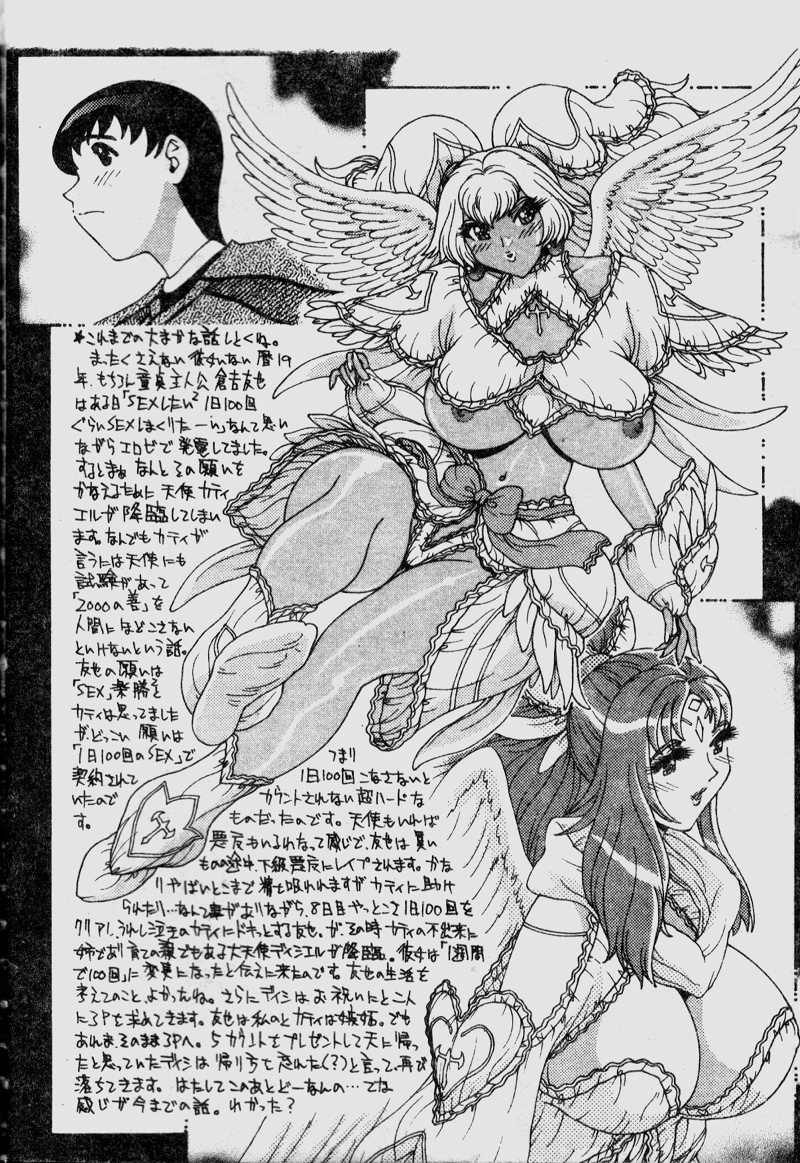 *これまでの大まかな話しとくね。
まったくさえない彼女いない暦19
年、もちろん童貞主人公 倉吉友也
はある日「SEXしたい² 1日100回
ぐらいSEXしまくりたーい」なんて思い
ながらエロゼで発電してました。
するとまぁなんとその願いを
かなえるために天使カティ
エルが降臨してしまい
ます。なんでもカティが
言うには天使にも
試験があって
「2000の善」を
人間にほどこさない
といけないという話。
友也の願いは
「SEX」楽勝と
カティは思ってました
が、どっこい願いは
「1日100回のSEX」で
契約されて
いたので
す。
つまり
1日100回こなさないと
カウントされない超ハードな
ものだったのです。天使もいれば
悪魔もいるわなって感じで、友也は買い
もの途中、下級悪魔にレイプされます。かな
りやばいとこまで精士吸われますがカティに助け
られたり…なんて事がありながら、8日目やっとこさ1日100回を
クリアし、うれし泣きのカティにドキッとする友也。が、その時カティの不出来に
姉であり育ての親でもある大天使ディシエルが降臨。彼女は「1週間
で100回」に変更になったと伝えに来たのです 友也の生活を
考えてのこと、よかったね。さらにディシはお祝いにと二人
に3Pを求めてきます。友也は私のとカティは嫉妬。でも
あれまぁそのまま3Pへ。5カウントをプレゼントして天に帰っ
たと思っていたディシは帰り方を忘れた(?)と言って、再び
落ちてきます。はたしてこのあとどーなんの…てな
感じが今までの話。わかった?